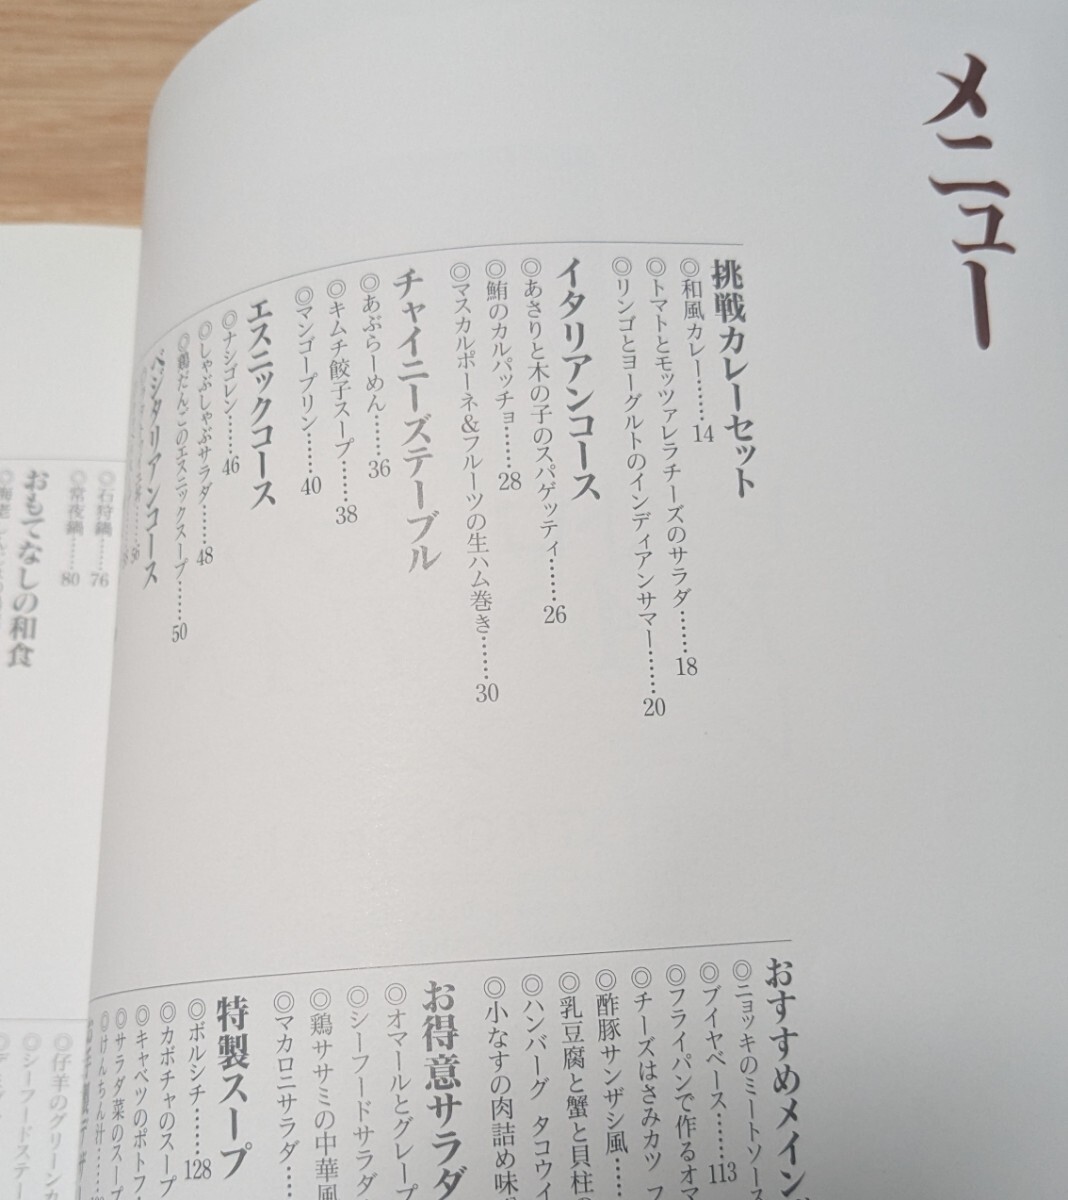 メニュー
挑戦カレーセット
◎和風カレー……14
◎トマトとモッツァレラチーズのサラダ……18
◎リンゴとヨーグルトのインディアンサマー……20
イタリアンコース
◎あさりと木の子のスパゲッティ……26
◎鮪のカルパッチョ……28
◎マスカルポーネ&フルーツの生ハム巻き……30
チャイニーズテーブル
◎あぶらーめん……36
◎キムチ餃子スープ……38
◎マンゴープリン……40
エスニックコース
◎ナシゴレン……46
◎しゃぶしゃぶサラダ……48
◎鶏だんごのエスニックスープ……50
ベジタリアンコース
おすすめメイン
◎ニョッキのミートソース
◎ブイヤベース……113
◎フライパンで作るオマ
◎チーズはさみカツ フ
◎酢豚サンザシ風……
◎乳豆腐と蟹と貝柱の
◎ハンバーグ タコウイ
◎小なすの肉詰め味
お得意サラダ
◎オマールとグレープ
◎シーフードサラダ
◎鶏ササミの中華風
◎マカロニサラダ……
特製スープ
◎ボルシチ……128
◎カボチャのスープ
◎キャベツのポトフ
◎サラダ菜のスープ
◎けんちん汁……
◎石狩鍋……76
◎常夜鍋……80
おもてなしの和食
◎仔羊のグリーンカ
◎シーフードステー